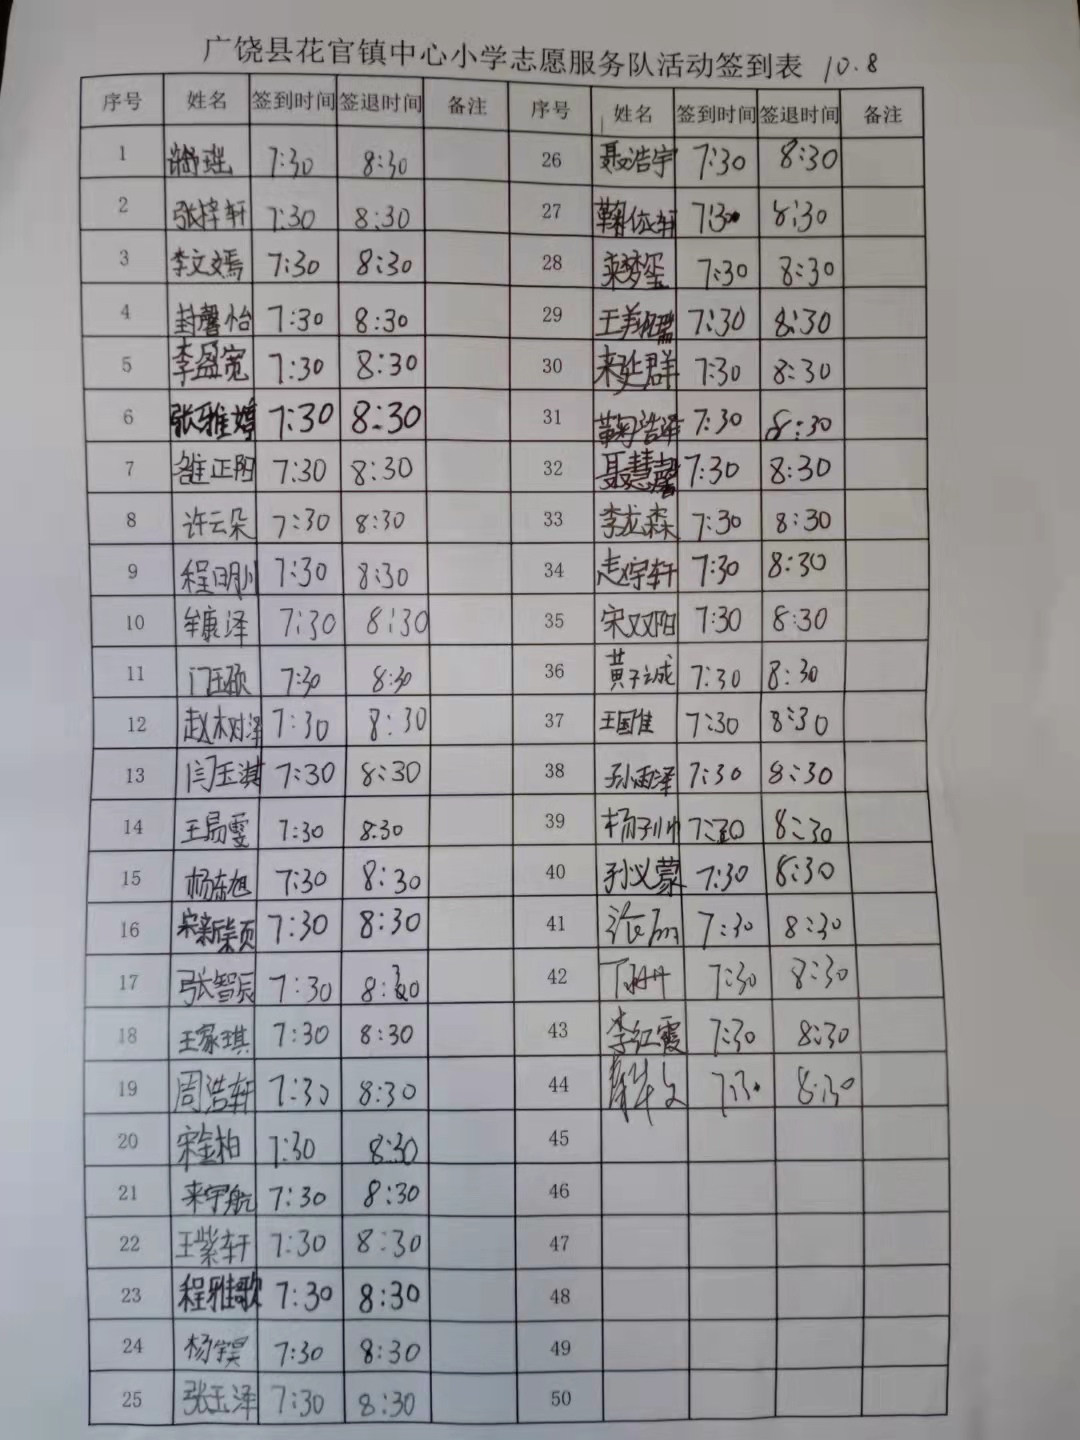 广饶县花官镇中心小学志愿服务队活动签到表 10.8
序号 姓名 签到时间 签退时间 备注 序号 姓名 签到时间 签退时间 备注
1 7:30 8:30 26 聂浩宇 7:30 8:30
2 张梓轩 7:30 8:30 27 鞠依轩 7:30 8:30
3 李文嫣 7:30 8:30 28 来梦玺 7:30 8:30
4 封馨怡 7:30 8:30 29 7:30 8:30
5 李盈宽 7:30 8:30 30 来延群 7:30 8:30
6 张雅婷 7:30 8:30 31 鞠浩泽 7:30 8:30
7 正阳 7:30 8:30 32 聂慧馨 7:30 8:30
8 许云朵 7:30 8:30 33 李龙森 7:30 8:30
9 程明川 7:30 8:30 34 7:30 8:30
10 牟康泽 7:30 8:30 35 宋双阳 7:30 8:30
11 7:30 8:30 36 黄子诚 7:30 8:30
12 赵树泽 7:30 8:30 37 王国佳 7:30 8:30
13 闫玉淇 7:30 8:30 38 孙雨泽 7:30 8:30
14 王易雯 7:30 8:30 39 杨子帅 7:30 8:30
15 杨东旭 7:30 8:30 40 孙义蒙 7:30 8:30
16 宋新颖 7:30 8:30 41 7:30 8:30
17 张智辰 7:30 8:30 42 7:30 8:30
18 王家琪 7:30 8:30 43 李红霞 7:30 8:30
19 周浩轩 7:30 8:30 44 7:30 8:30
20 宋金柏 7:30 8:30 45
21 来宇航 7:30 8:30 46
22 王紫轩 7:30 8:30 47
23 程雅歌 7:30 8:30 48
24 杨昊 7:30 8:30 49
25 张玉泽 7:30 8:30 50